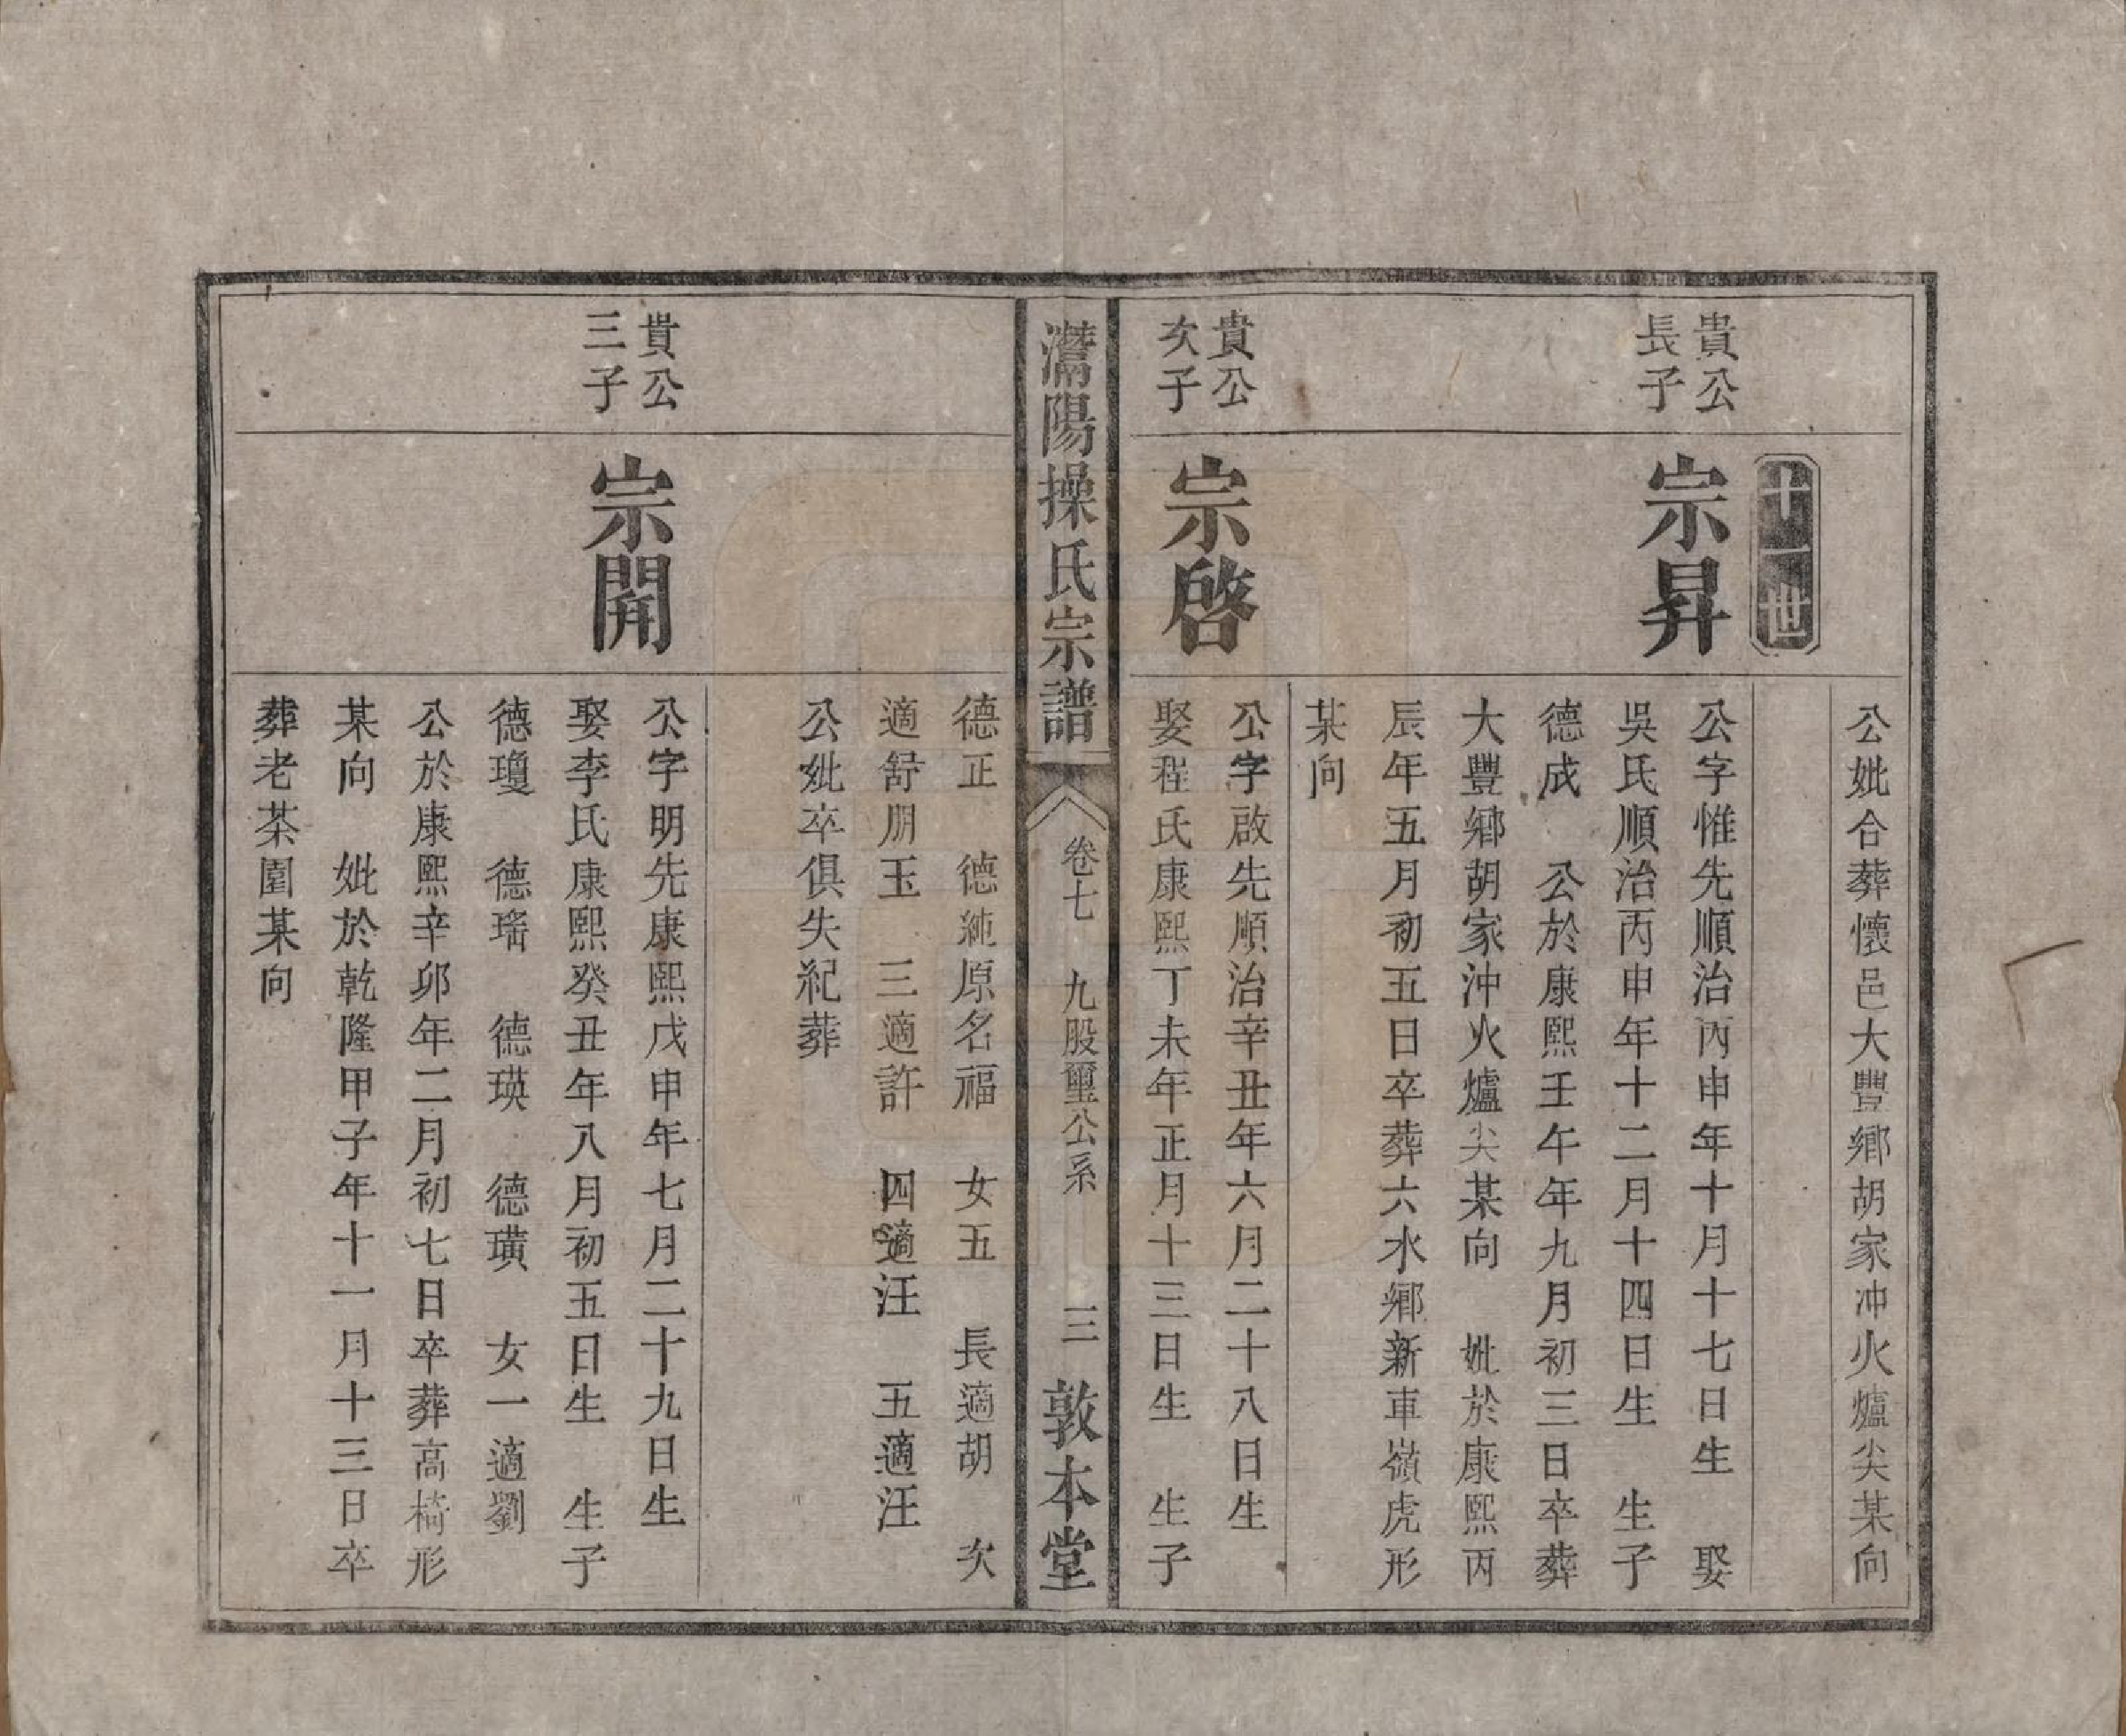 公妣合葬懷邑大豐鄉胡家冲火爐尖某向
十一世
貴公
長子
宗昇
公字惟先順治丙申年十月十七日生 娶
吳氏順治丙申年十二月十四日生 生子
德成 公於康熙壬午年九月初三日卒葬
大豐鄉胡家沖火爐尖某向 妣於康熙丙
辰年五月初五日卒葬六水鄉新車嶺虎形
某向
貴公
次子
宗啓
公字啟先順治辛丑年六月二十八日生
娶程氏康熙丁未年正月十三日生 生子
灊陽操氏宗譜 卷七 九股璽公系 三 敦本堂
德正 德純原名福 女五 長適胡 次
適舒朋玉 三適許 四適汪 五適汪
公妣卒俱失紀葬
貴公
三子
宗開
公字明先康熙戊申年七月二十九日生
娶李氏康熙癸丑年八月初五日生 生子
德瓊 德瑤 德瑛 德璜 女一適劉
公於康熙辛卯年二月初七日卒葬高椅形
某向 妣於乾隆甲子年十一月十三日卒
葬老茶園某向